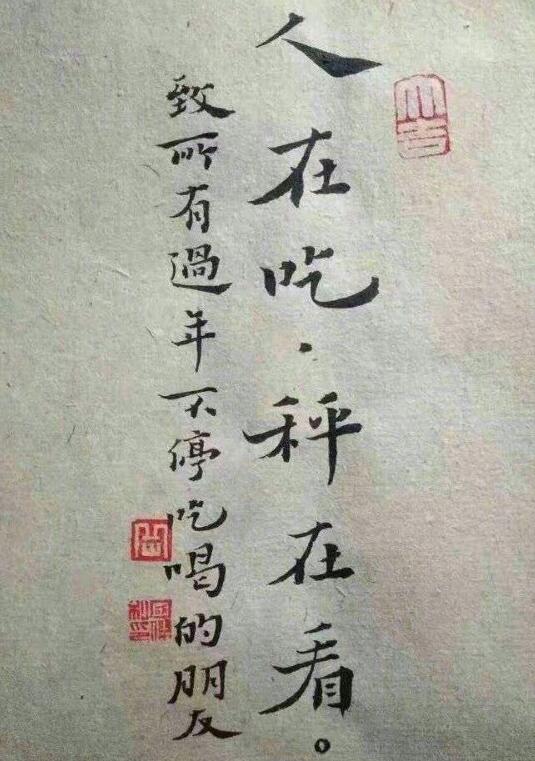 人在吃·秤在看。
致所有過年不停吃喝的朋友